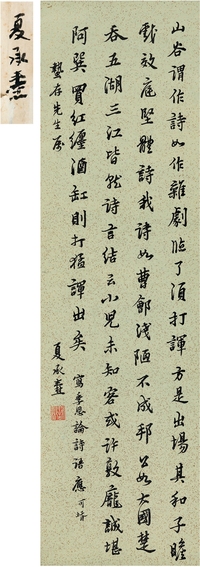 夏承燾
山谷謂作詩如作雜劇臨了須打諢方是出場其和子瞻
戲效庭堅體詩哉詩如曹鄶淺陋不成邦公如大國楚
吞五湖三江皆然詩言結云小兒未知客或許敦龐誠堪
阿巽買紅纏酒缸則打猛諢出矣
寫季思論詩語應可靖
螯存先生屬
夏承燾